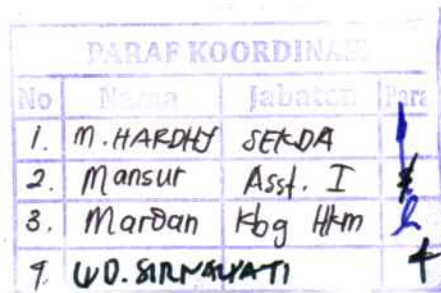 PARAF KOORDINASI
No Nama Jabatan Para
1. M. HARDHY SEKDA
2. Mansur Asst. I
3. Mardan Kbg Hkm
4. WD. SIRNAWATI